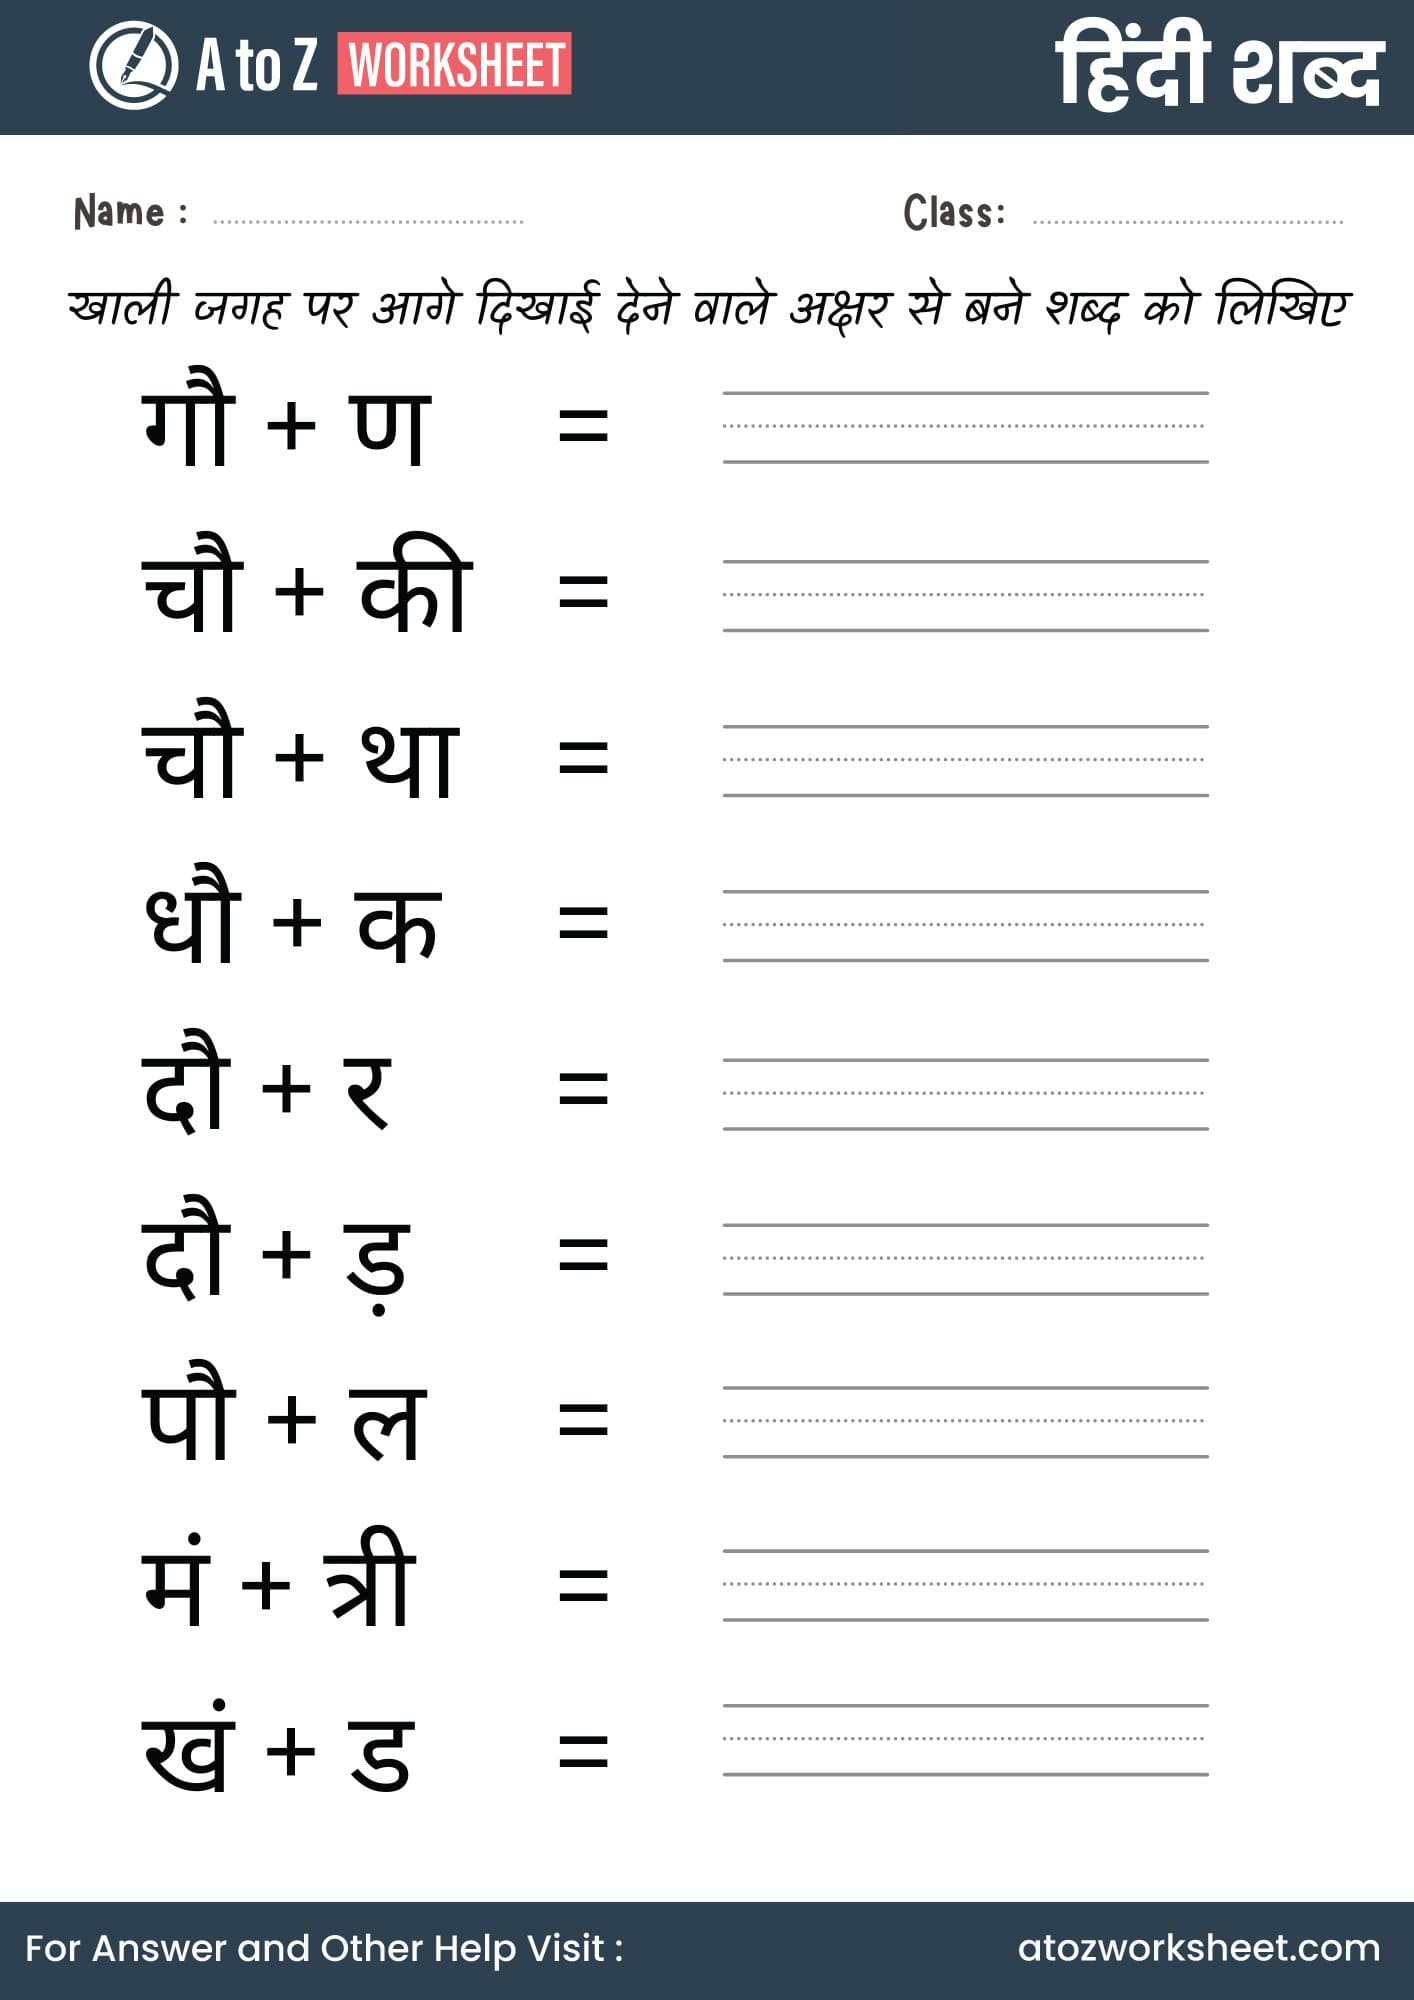 A to Z WORKSHEET हिंदी शब्द
Name : Class:
खाली जगह पर आगे दिखाई देने वाले अक्षर से बने शब्द को लिखिए
गौ + ण =
चौ + की =
चौ + था =
धौ + क =
दौ + र =
दौ + ड़ =
पौ + ल =
मं + त्री =
खं + ड =
For Answer and Other Help Visit : atozworksheet.com